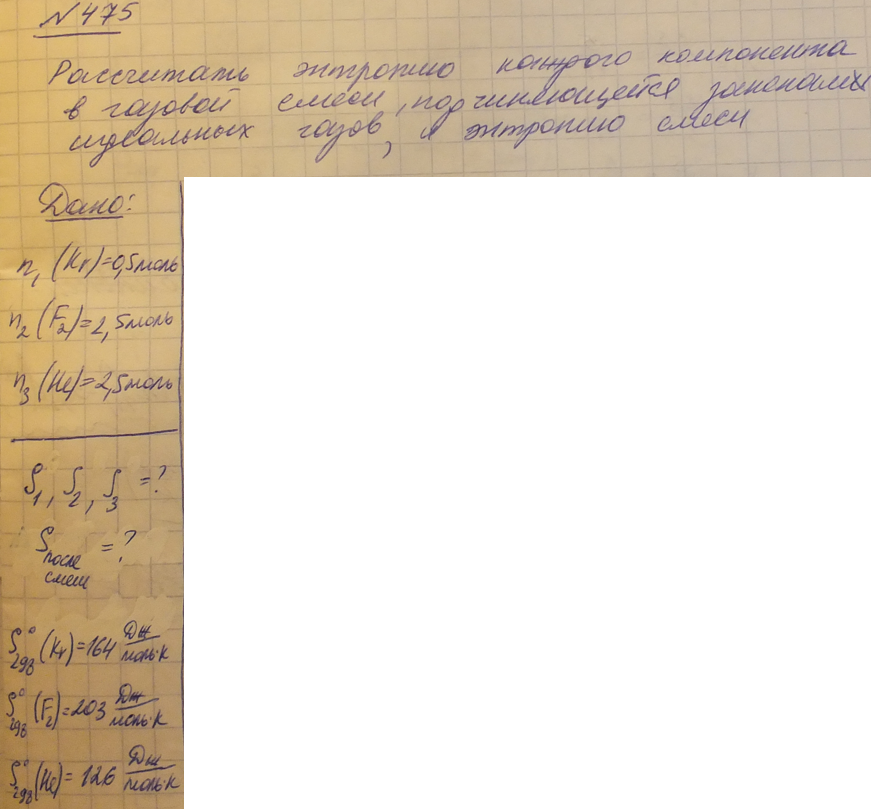 №475
Рассчитать энтропию каждого компонента
в газовой смеси, подчиняющейся законам
идеальных газов, и энтропию смеси
Дано:
n₁ (Kr)=0,5моль
n₂ (F₂)=2,5моль
n₃ (He)=2,5моль
S₁, S₂, S₃ =?
S после смеш =?
S°₂₉₈(Kr)=164 Дж/моль·К
S°₂₉₈(F₂)=203 Дж/моль·К
S°₂₉₈(He)=126 Дж/моль·К